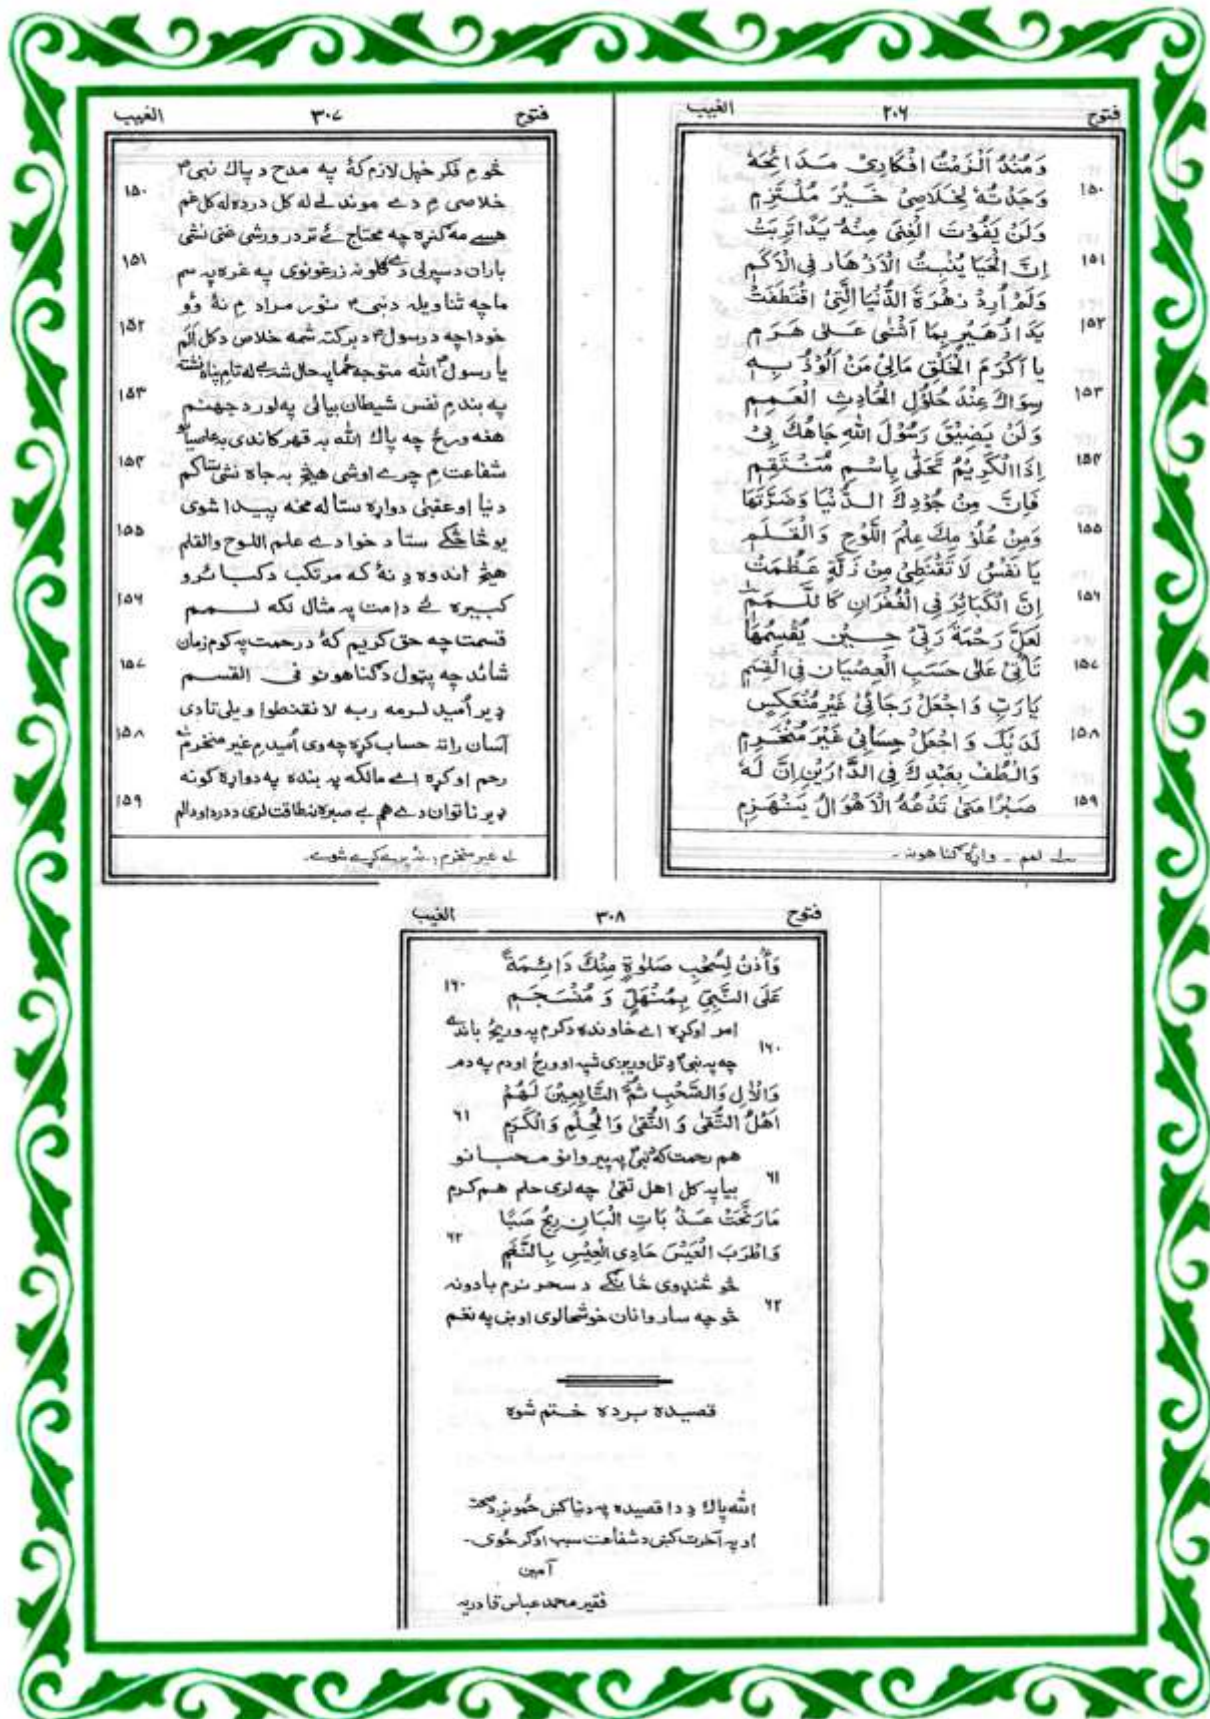 فتوح ٢٠٦ الغيب
وَمُنْذُ اَلْزَمْتُ اَفْكَارِیْ مَدَائِحَهٗ
وَجَدْتُهٗ لِخَلَاصِیْ خَيْرَ مُلْتَزِمٖ ١٥٠
وَلَنْ يَفُوْتَ الْغِنٰی مِنْهُ يَدًا تَرِبَتْ
اِنَّ الْحَيَا يُنْبِتُ الْاَزْهَارَ فِی الْاَكَمِ ١٥١
وَلَمْ اُرِدْ زَهْرَةَ الدُّنْيَا الَّتِیْ اقْتَطَفَتْ
يَدَا زُهَيْرٍ بِمَا اَثْنٰی عَلٰی هَرَمٖ ١٥٢
يا اَكْرَمَ الْخَلْقِ مَالِیْ مَنْ اَلُوْذُ بِهٖ
سِوَاكَ عِنْدَ حُلُوْلِ الْحَادِثِ الْعَمِمِ ١٥٣
وَلَنْ يَضِيْقَ رَسُوْلَ اللّٰهِ جَاهُكَ بِیْ
اِذَا الْكَرِيْمُ تَحَلّٰی بِاسْمِ مُنْتَقِمٖ ١٥٤
فَاِنَّ مِنْ جُوْدِكَ الدُّنْيَا وَضَرَّتَهَا
وَمِنْ عُلُوْمِكَ عِلْمَ اللَّوْحِ وَالْقَلَمِ ١٥٥
يَا نَفْسُ لَا تَقْنَطِیْ مِنْ زَلَّةٍ عَظُمَتْ
اِنَّ الْكَبَائِرَ فِی الْغُفْرَانِ كَاللَّمَمِ ١٥٦
لَعَلَّ رَحْمَةَ رَبِّیْ حِيْنَ يَقْسِمُهَا
تَأْتِیْ عَلٰی حَسَبِ الْعِصْيَانِ فِی الْقِسَمِ ١٥٧
يَا رَبِّ وَاجْعَلْ رَجَائِیْ غَيْرَ مُنْعَكِسٍ
لَدَيْكَ وَاجْعَلْ حِسَابِیْ غَيْرَ مُنْخَرِمٖ ١٥٨
وَالْطُفْ بِعَبْدِكَ فِی الدَّارَيْنِ اِنَّ لَهٗ
صَبْرًا مَتٰی تَدْعُهُ الْاَهْوَالُ يَنْهَزِمٖ ١٥٩
لمم ـ واړه ګناهونه ـ
فتوح ٣٠٧ الغيب
څوم فكر خپل لازم كۀ په مدح د پاك نبی
خلاصی م دے موندلے له كل درده له كل غم ١٥٠
هسے مه ګنړه چه محتاج ئے تر در ورشی غنی نشی
باران د سپرلی دے ګلونه زرغونوی په غره په سم ١٥١
ما چه ثنا ويله د نبی نور مراد م نۀ وۀ
خو دا چه د رسول د بركته شمه خلاص د كل الم ١٥٢
يا رسول الله متوجه په حال شه بے له تا م پناه نشته
په بند م نفس شيطان بيائی په لور د جهنم ١٥٣
هغه ورځ چه پاك الله په قهر كاندی په عاصيانو
شفاعت م چرے اوشی هيڅ به جاه نشی ستا كم ١٥٤
دنيا او عقبٰی دواړه ستا له مخه پيدا شوی
يو څاڅكے ستا د خوا دے علم اللوح والقلم ١٥٥
هيڅ اندوه د نۀ كه مرتكب د كبائرو
كبيره ئے د امت په مثال لكه لمم ١٥٦
قسمت چه حق كريم كۀ د رحمت په كوم زمان
شائد چه په تول د ګناهونو فی القسم ١٥٧
ډير اُميد لرمه ربه لا تقنطوا ويلی تا دی
آسان راته حساب كړه چه وی اُميد م غير منخرم ١٥٨
رحم اوكړه اے مالكه په بنده په دواړه كونه
ډير ناتوان دے هم بے صبره نه طاقت لری د درد او د الم ١٥٩
غير منخرم
فتوح ٣٠٨ الغيب
وَأْذَنْ لِسُحْبِ صَلٰوةٍ مِنْكَ دَائِمَةً
عَلَی النَّبِیِّ بِمُنْهَلٍّ وَ مُنْسَجِمٖ ١٦٠
امر اوكړه اے خاونده د كرم په وريځ باندے
چه په نبی د تل وريږی شپه او ورځ او دم په دم ١٦٠
وَالْاٰلِ وَالصَّحْبِ ثُمَّ التَّابِعِيْنَ لَهُمْ
اَهْلُ التُّقٰی وَ النُّقٰی وَالْحِلْمِ وَالْكَرَمِ ٦١
هم رحمت كه د نبی په پيروانو محبانو
بيا په كل اهل تقیٰ چه لری حلم هم كرم ٦١
مَا رَنَّحَتْ عَذَبَاتِ الْبَانِ رِيْحُ صَبًا
وَاَطْرَبَ الْعِيْسَ حَادِی الْعِيْسِ بِالنَّغَمِ ٦٢
څو څنډوی څانګے د سحر نرم بادونه
څو چه ساروانان خوشحالوی اوښی په نغم ٦٢
قصيده برده ختم شوه
الله پاك د دا قصيده په دنيا كښ ځمونږ د صحت
او په آخرت كښ د شفاعت سبب اوګرځوی ـ
آمين
فقير محمد عباس قادريه